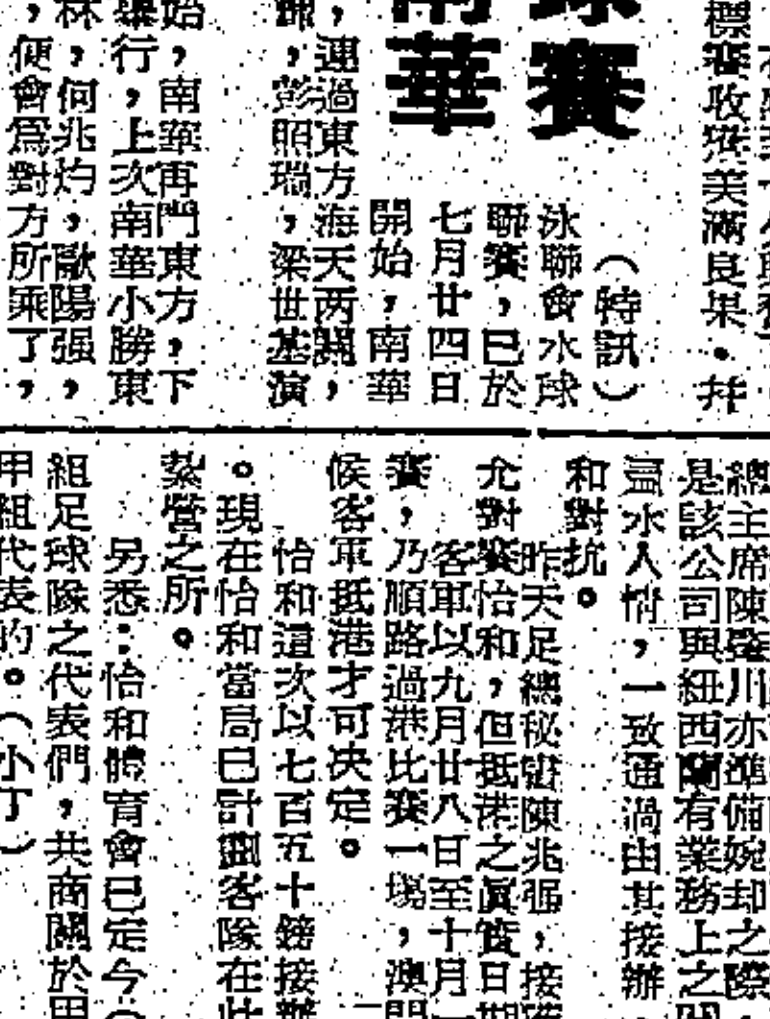 標賽收獲美滿良果。幷
球賽
南華
（特訊）
泳聯會水球
聯賽，已於
七月廿四日
開始，南華
，連過東方海天两關，
，彭照瑞，梁世基演
始，南華再鬥東方，下
暴行，上次南華小勝東
林，何兆灼，歐陽强，
，便會爲對方所乘了，
總主席陳肇川亦準備婉却之際，
是該公司與紐西蘭有業務上之關
水人情，一致通過由其接辦
和對抗。
昨天足總秘書陳兆，接
允對賽怡和，但抵港之眞實日期
客軍以九月廿八日至十月一
賽，乃順路過港比賽一塲，澳門
候客軍抵港才可决定。
怡和這次以七百五十鎊接辦
。現在怡和當局已計劃客隊在此
紮營之所。
另悉：怡和體育會已定今（
組足球隊之代表們，共商關於甲
甲組代表的。（小丁）